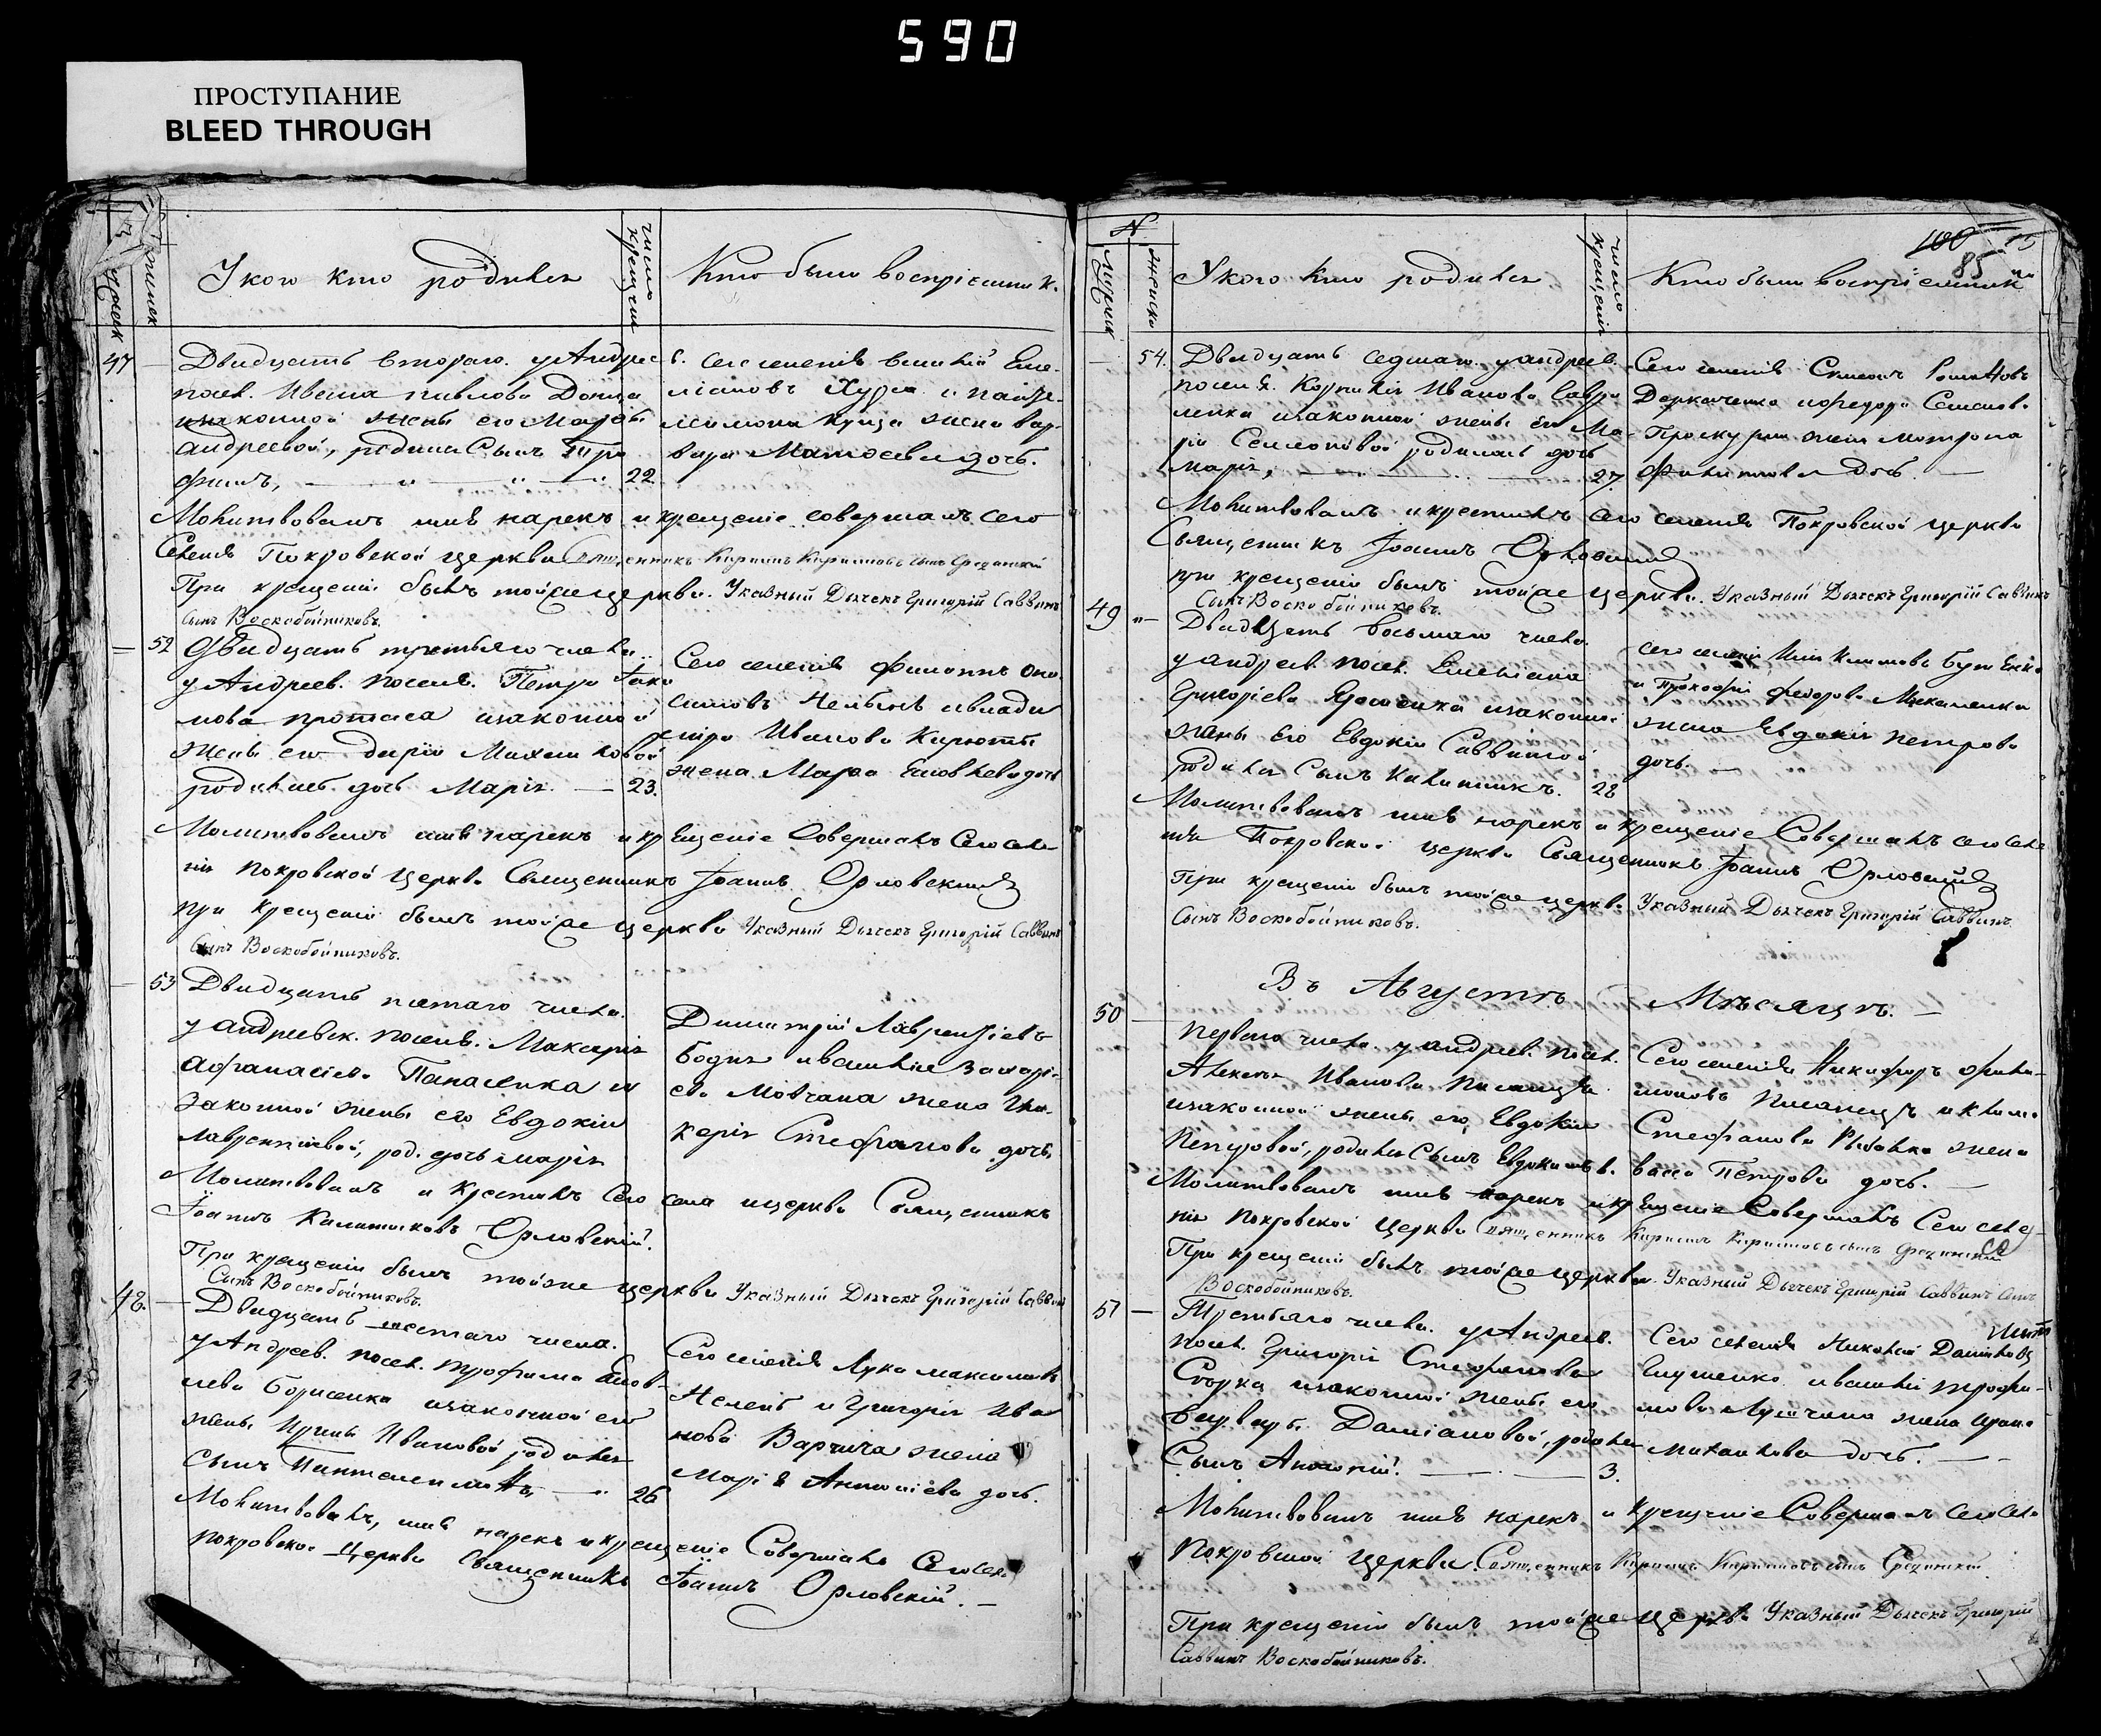 590
ПРОСТУПАНИЕ
BLEED THROUGH
У кого кто родился
число крещенія
Кто были воспріемник.
47
Двадцать втораго. у Андрее
посел. Ивана Павлова Донца
изаконной жены его Марѳы
Андреевой, родился Сынъ Тро
фимъ, 22
сего селенія
ліановъ Хурса и
жена Вар-
вара Матѳеева дочь.
Молитвовалъ имя нарекъ и крещеніе совершалъ сего
Селенія Покровской церкви Священникъ Кириллъ Кирилловъ сынъ
При крещеніи былъ тойже церкви. Указный Дьячекъ Григорій Саввинъ
Сынъ Воскобойниковъ.
52
Двадцать третьяго числа
у Андреев. посел. Петра Іако
лова изаконной
жены его Даріи Михайловой
родилась дочь Марія. 23.
Сего селенія Филиппъ
симовъ и Влади
мира Иванова
жена Марѳа дочь
Молитвовалъ имя нарекъ и крещеніе Совершалъ Сего селе
нія Покровской Церкви Священникъ Іоаннъ Орловскій
при Крещеніи былъ тойже церкви Указный Дьячекъ Григорій Саввинъ
Сынъ Воскобойниковъ.
53
Двадцать пятаго числа.
у Андреевск. посел. Макарія
Аѳанасіева Панасенка из
законной жены его Евдокіи
Лаврентіевой, род. дочь Марія
Димитрій Лаврентіевъ
Бодня и Василія Захарі-
ева Мовчана жена Гли-
керія Стефанова дочь.
Молитвовалъ и Крестилъ Сего села и церкви Священникъ
Іоаннъ Калинниковъ Орловскій.
При крещеніи былъ тойже церкви Указный Дьячекъ Григорій Саввинъ
Сынъ Воскобойниковъ.
48.
Двадцать шестаго числа.
у Андреев. посел. Трофима Іаков-
лева Борисенка изаконной его
жены Ирины Ивановой родился
Сынъ Пантелеимонъ, 26
Сего селенія Лука Максимовъ
и Григорія Ива
нова Варчича жена
Марія Антоніева дочь.
Молитвовалъ, имя нарекъ и крещеніе Совершалъ Сего сел.
Покровской Церкви Священникъ Іоаннъ Орловскій.
N
мужск
женск
У кого кто родился
число крещенія
100
85
Кто были воспріемник
54.
Двадцать седмаго. у Андреев.
посел. Корнилія Иванова Гаври
ленка изаконной жены его Ма-
ріи Семеновой родилась дочь
Марія, 27.
Сего селенія
Деркаченко и Федора Семенова
Проскурни жена Матрона
Филиппова Дочь.
Молитвовалъ и крестилъ сего селенія Покровской церкви
Священникъ Іоаннъ Орловскій
при крещеніи былъ тойже церкви. Указный Дьячекъ Григорій Саввинъ
Сынъ Воскобойниковъ.
49
Двадцать восьмаго числа.
у Андреев. посел. Емеліана
Григоріева изаконной
жены его Евдокіи Саввиной
родился Сынъ Калинникъ. 28
сего селенія
и Прокофія Федорова
жена Евдокія Петрова
дочь.
Молитвовалъ имя нарекъ и крещеніе Совершалъ сего селе
нія Покровской церкви Священникъ Іоаннъ Орловскій
При крещеніи былъ тойже церкви Указный Дьячекъ Григорій Саввинъ
Сынъ Воскобойниковъ.
Въ Августѣ Мѣсяцѣ.
50
Перваго числа. у Андреев. посел.
Алексѣя Иванова
изаконной жены его Евдокіи
Петровой, родился Сынъ Евдокимъ 1.
Сего селенія Никифоръ Фили-
повъ Писанецъ и Клима
Стефанова Рыбалка жена
Васса Петрова дочь.
Молитвовалъ имя нарекъ и крещеніе Совершалъ Сего селе
нія Покровской Церкви Священникъ Кириллъ Кирилловъ сынъ
При крещеніи былъ тойже церкви. Указный Дьячекъ Григорій Саввинъ Сынъ
Воскобойниковъ.
51
Третьяго числа. у Андреев.
посел. Григорія Стефанова
изаконной жены его
Варвары Даміановой, родился
Сынъ Антоній. 3.
Сего селенія Николай
и Василія Трофи-
мова жена
Михайлова дочь.
Молитвовалъ имя нарекъ и крещеніе Совершалъ Сего сел.
Покровской Церкви Священникъ Кириллъ Кирилловъ сынъ
При крещеніи былъ тойже Церкви Указный Дьячекъ Григорій
Саввинъ Воскобойниковъ.